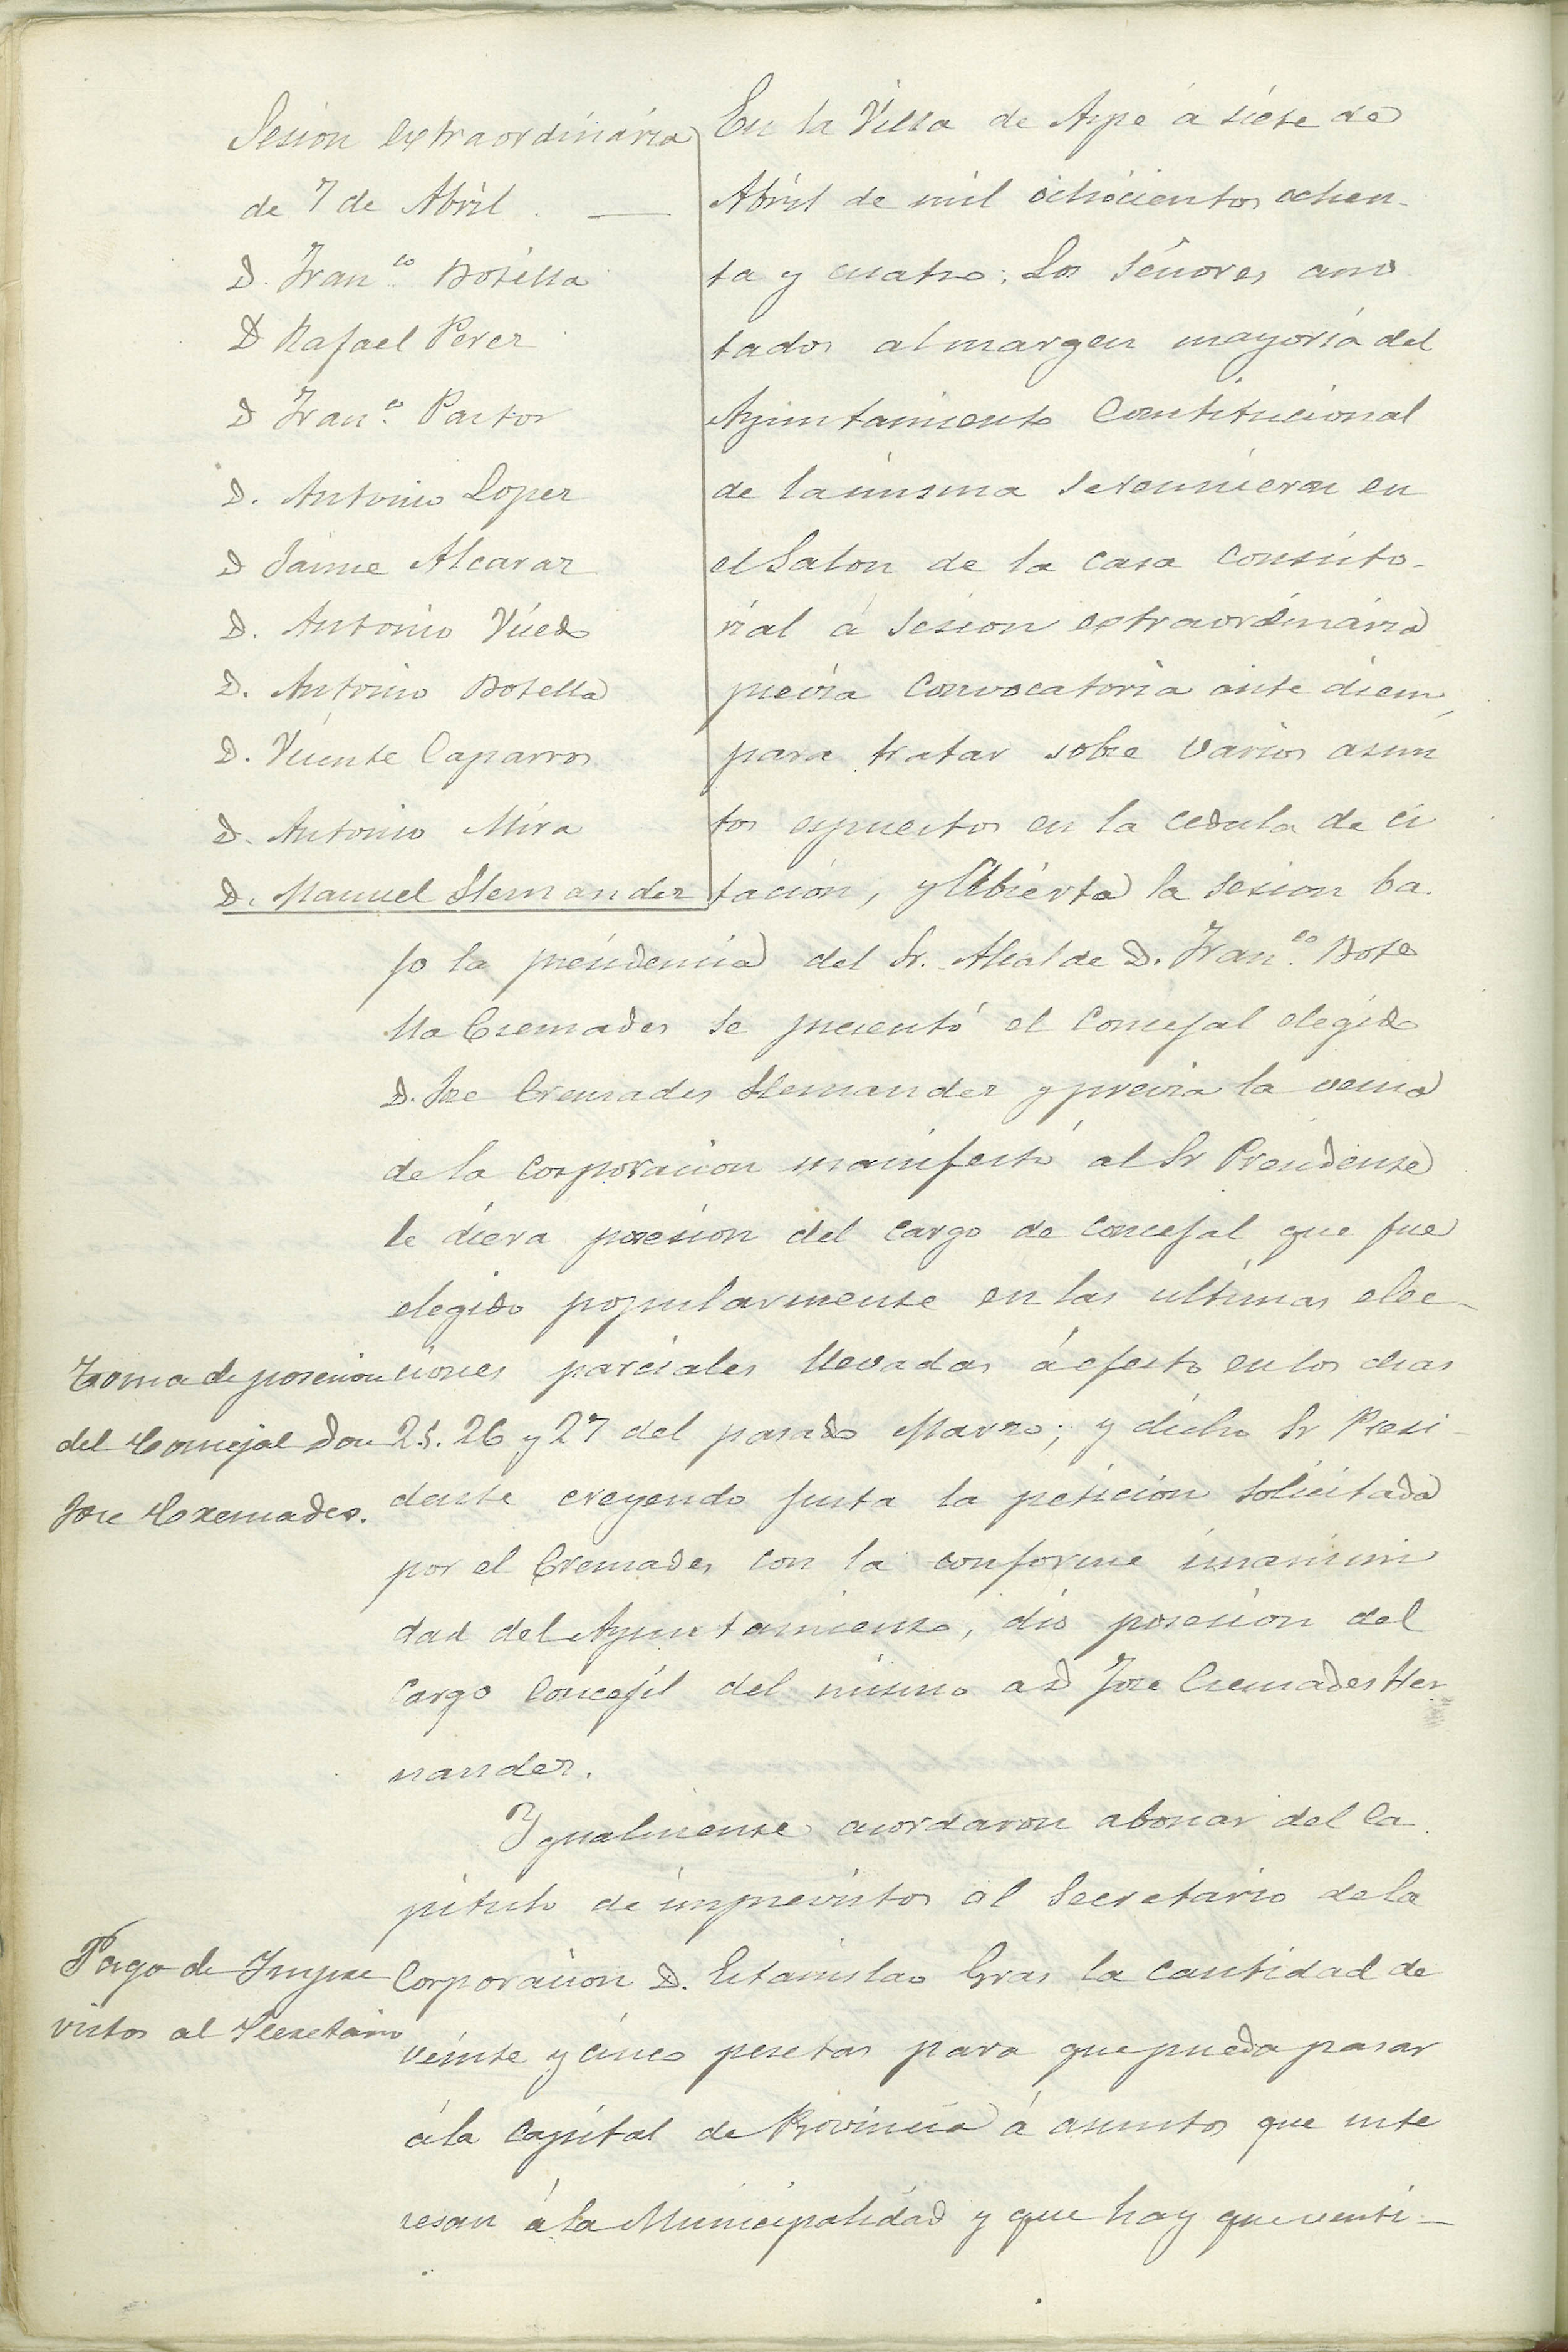 Sesion extraordinaria
de 7 de Abril. —
D. Fran.co Botella
D Rafael Perez
D Fran.co Pastor
D. Antonio Lopez
D Jaime Alcaraz
D. Antonio Vicedo
D. Antonio Botella
D. Vicente Caparros
D. Antonio Mira
D. Manuel Hernandez
En la Villa de Aspe á siete de
Abril de mil ochocientos ochen-
ta y cuatro: Los Señores ano
tados al margen mayoría del
Ayuntamiento Constitucional
de la misma se reunieron en
el Salon de la casa consisto-
rial á sesion extraordinaria
previa convocatoria ante diem,
para tratar sobre varios asun
tos espuestos en la cedula de ci
tación, y Abierta la sesion ba-
jo la presidencia del Sr. Alcalde D. Fran.co Bote
lla Cremades se presentó el concejal elegido
D. Jose Cremades Hernandez y previa la venia
de la corporacion manifestó al Sr Presidente
le diera posesion del cargo de concejal que fue
elegido popularmente en las ultimas elec-
ciones parciales llevadas á efecto en los dias
25. 26 y 27 del pasado Marzo; y dicho Sr Presi-
dente creyendo justa la peticion solicitada
por el Cremades con la conforme unanimi
dad del Ayuntamiento, dió posesion del
cargo Concejil del mismo a D Jose Cremades Her
nandez.
Toma de posesion
del Concejal Don
Jose Cremades.
Ygualmente acordaron abonar del Ca-
pitulo de imprevistos al Secretario de la
Corporacion D. Estanislao Gras la cantidad de
veinte y cinco pesetas para que pueda pasar
á la capital de Provincia á asuntos que inte
resan á la Municipalidad y que hay que venti-
Pago de Impre
vistos al Secretario